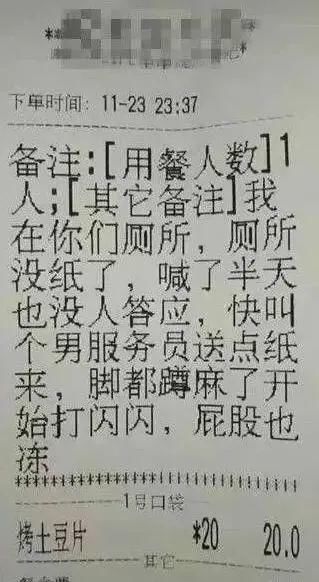 下单时间： 11-23 23:37
备注:[用餐人数]1
人;[其它备注]我
在你们厕所，厕所
没纸了，喊了半天
也没人答应，快叫
个男服务员送点纸
来，脚都蹲麻了开
始打闪闪，屁股也
冻
1号口袋
烤土豆片 *20 20.0
其它